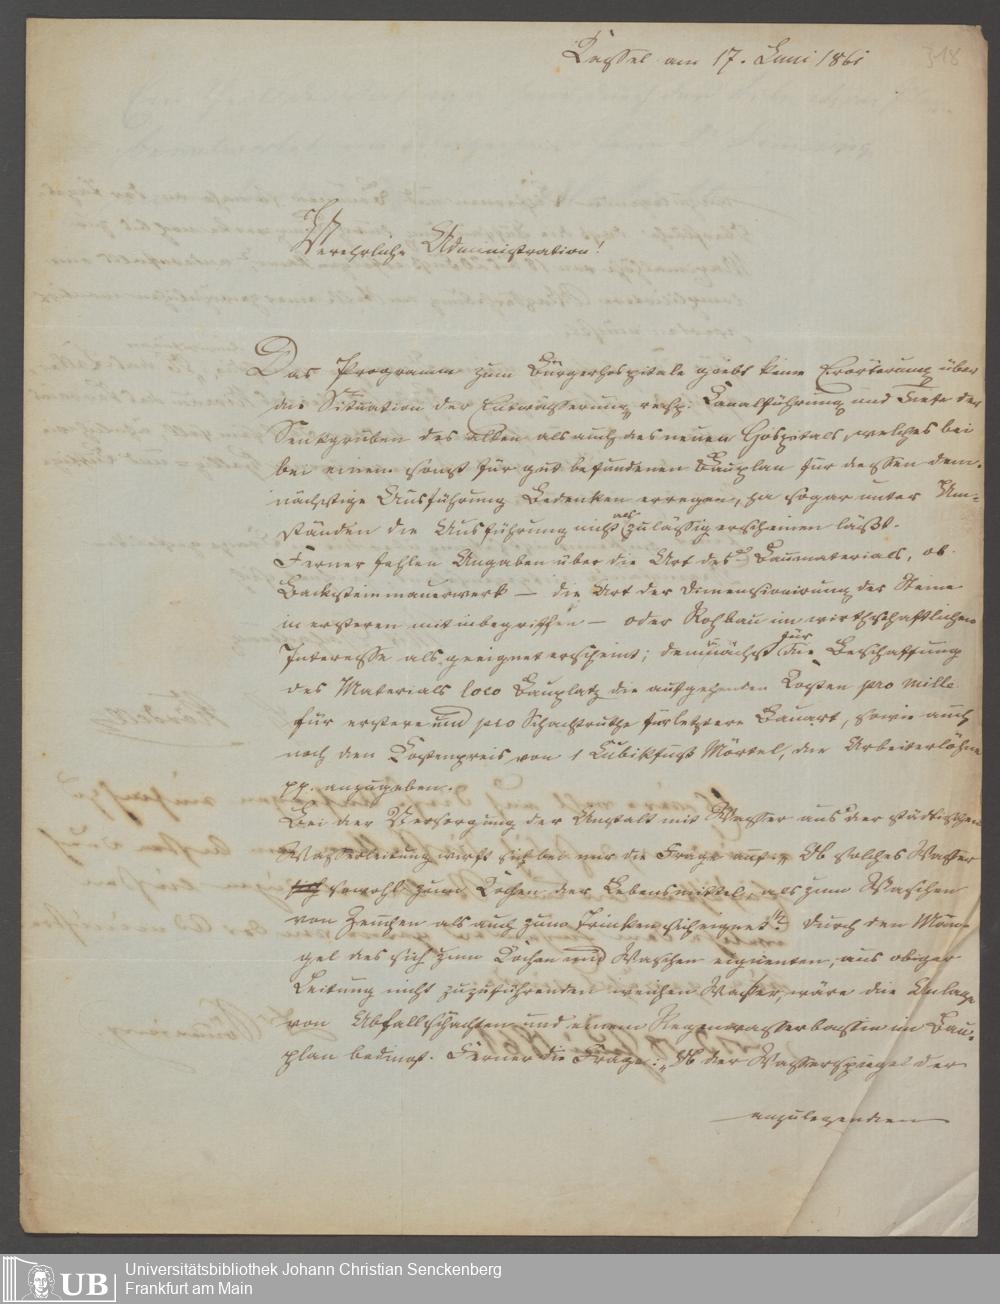 Cassel am 17. Juni 1861
318
Verehrliche Administration!
Das Programm zum Bürgerhospitale giebt keine Erörterung über
die Situation der Entwässerung resp: Canalführung und Tiefe der
Senkgruben des alten als auch des neuen Hospitals, welches bei
bei einem sonst für gut befundenen Bauplan für dessen dem-
nächstige Ausführung Bedenken erregen, ja sogar unter Um-
ständen die Ausführung nicht als zulässig erscheinen läßt.
Ferner fehlen Angaben über die Art des Baumaterials, ob
Backsteinmauerwerk — die Art der Dimensionirung der Steine
in ersteren mitinbegriffen — oder Rohbau im wirthschaftlichen
Interesse als geeignet erscheint; demnächst für die Beschaffung
des Materials loco Bauplatz die aufgehenden Kosten pro mille
für erstere und pro Schachtruthe für letztere Bauart, sowie auch
noch den Kostenpreis von 1 Cubikfuß Mörtel, die Arbeiterlöhne
pp. anzugeben.
Bei der Versorgung der Anstalt mit Wasser aus der städtischen
Wasserleitung wirft sich bei mir die Frage auf: „Ob solches Wasser
sowohl zum Kochen der Lebensmittel, als zum Waschen
von Zeuchen als auch zum Trinken sich eignet?" Durch den Man-
gel des sich zum Kochen und Waschen eignenden, aus obiger
Leitung nicht zuzuführenden weichen Wasser, wäre die Anlage
von Abfallschachten und einem Regenwasserbassin im Bau-
plan bedingt. Ferner die Frage: „Ob der Wasserspiegel der
anzulegenden
UB
Universitätsbibliothek Johann Christian Senckenberg
Frankfurt am Main